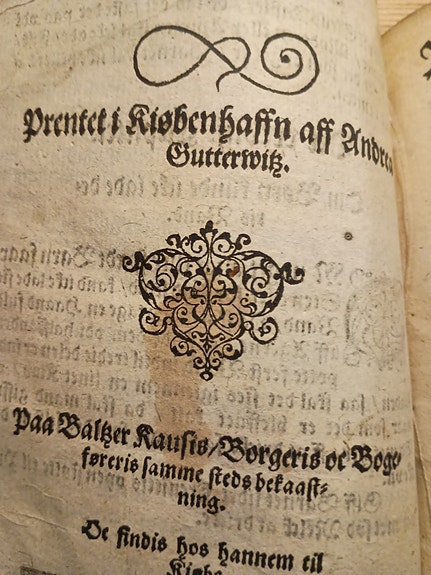 Prentet i Kiøbenhaffn aff Andrea
Gutterwitz.
Paa Baltzer Kausis/Borgeris oc Boge-
føreris samme steds bekaast-
ning.
Oc findis hos hannem til